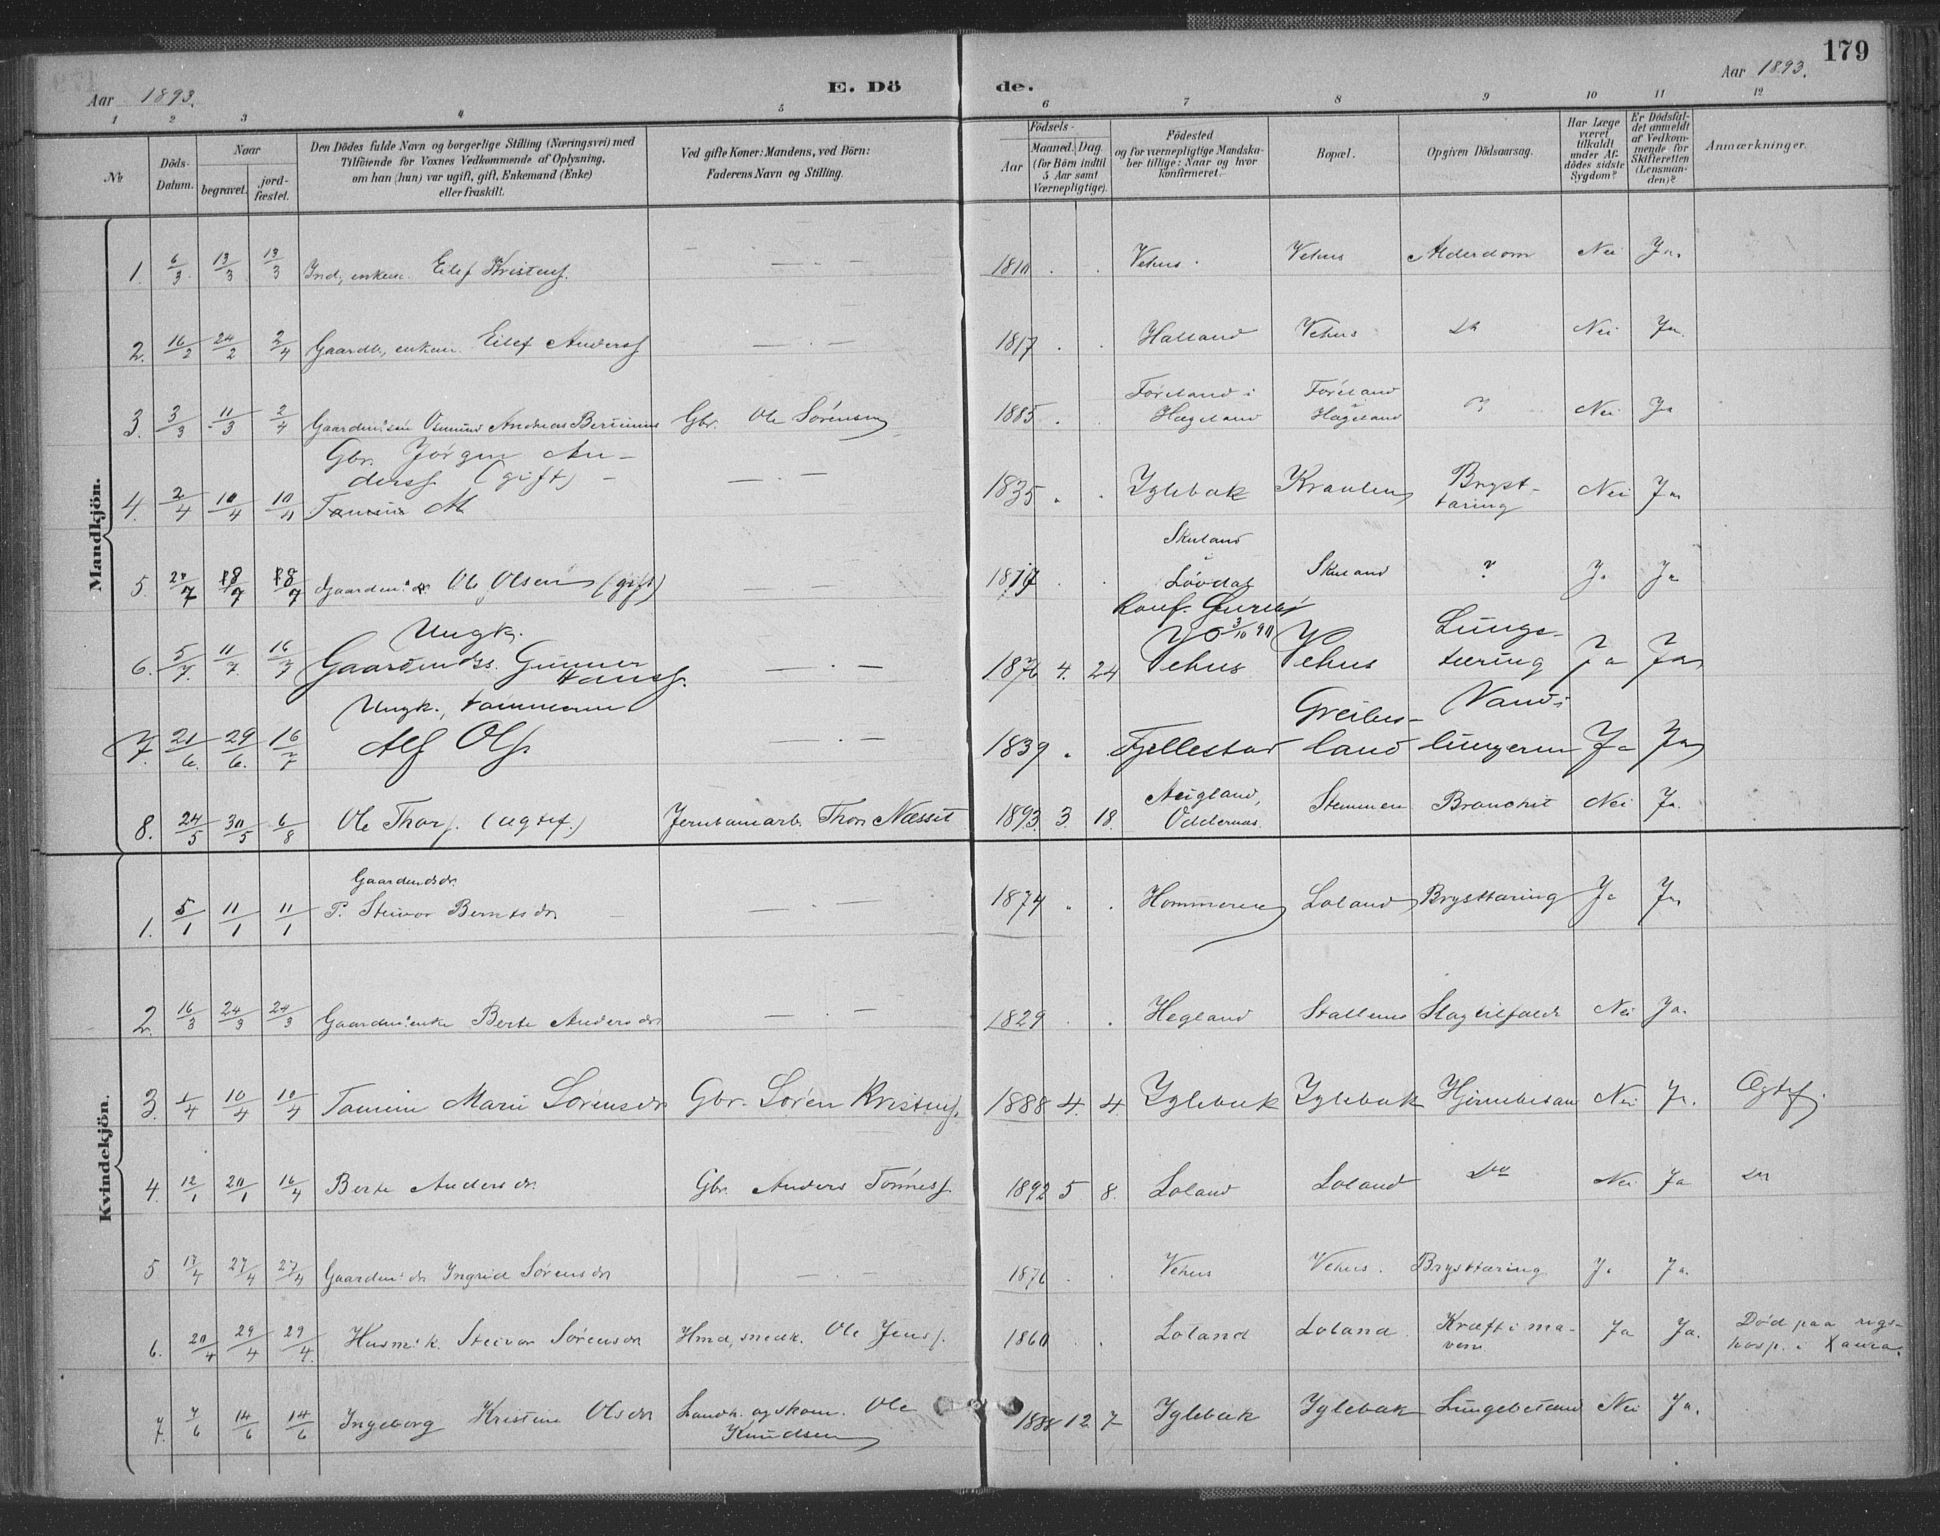 179
Aar 1893. E. Dö de. Aar 1893.
1 2 3 4 5 6 7 8 9 10 11 12
No
Döds-Datum.
Naar
begravet.
jord-fæstet.
Den Dödes fulde Navn og borgerlige Stilling (Næringsvei) med
Tilföiende for Voxnes Vedkommende af Oplysning,
om han (hun) var ugift, gift, Enkemand (Enke)
eller fraskilt.
Ved gifte Koner: Mandens, ved Börn:
Faderens Navn og Stilling.
Födsels-
Aar
Maaned. Dag.
(for Börn indtil
5 Aar samt
Værnepligtige).
Födested
og for værnepligtige Mandska-
ber tillige: Naar og hvor
konfirmeret.
Bopæl.
Opgiven Dödsaarsag.
Har Læge
været
tilkaldt
under Af-
dödes sidste
Sygdom?
Er Dödsfal-
det anmeldt
af Vedkom-
mende for
Skifteretten
(Lensman-
den)?
Anmærkninger.
Mandkjön.
1. 6/3 13/3 13/3 Ind, enkem. Eilef Kristens. — . — 1810 . . Vehus. Vehus Alderdom Nei Ja.
2. 16/2 24/2 2/4 Gaardb, enkem. Eilef Anders — . — 1817 . . Halland Vehus Do Nei Ja.
3. 3/3 11/3 2/4 Gaardm: sön Osmund Andreas Gbr. Ole Sörensen 1885 . Föreland i Hægeland Föreland i Hægeland ? Nei Ja
Gbr. Jörgen An-
ders (gift)
4. 2/4 10/4 Tamine M — . — 1835 . . Iglebæk Bryst-
tæring Nei Ja
5 18/7 18/7 Gaardm: Ole Olsen (gift) — . — . . Skuland
i
Lövdal Skuland ? Ja Ja
Ungk.
6. 5/7. 11/7. 16/7 Gaardmds. Gunner
Hans. — . — 1876 4. 24 Konf.
3/10 90
Vehus Vehus Lunge-
tæring Ja Ja
Ungk., tömmerm
7. 21/6. 29/6. 16/7 Alf Ols. — . — 1839 . Fjellestad Greibes-
land Vand i
lungerne Ja Ja
8. 24/5 30/5 6/8 Ole Thors. (ugtef.) Jernbanearb. Thor Næsset 1893. 3. 18. Augland,
Oddernes. Stemmen Bronchit Nei Ja.
Kvindekjön.
Gaardmdsdr.
1. 5/1 11/1 11/1 P. Steinor Berntsdr — . — 1874 . . Hommeren Loland Brysttæring Ja Ja
2. 16/3 24/3 24/3 Gaardm: enke Berte Andersdr — . — 1829 . . Hegland Slagtilfælde Nei Ja.
3. 1/4 10/4 10/4 Tamine Marie Sörensdr Gbr. Sören Kristens. 1888 4. 4 Iglebæk Iglebæk Hjernebetæn Nei Ja. Ægtef.
4. 12/1 20/1 16/4 Berte Andersdr. Gbr. Anders Tönnes. 1892 5 8. Loland Loland Do Nei Ja Do
5 17/4 27/4 27/4 Gaardm: dr Ingrid Sörensdr — . — 1876 . . Vehus Vehus. Brysttæring Ja Ja.
6. 20/4 29/4 29/4. Husm: k. Steinor Sörensdr Hmd, snedk. Ole Jens. 1860 . Loland Loland. Kræft i ma-
ven Ja Ja. Död paa rigs-
hosp. i Xania.
7. 7/6 14/6 14/6 Ingeborg Kristine Olsdr Landh. Ole
Knudsen 12 7 Iglebæk Iglebæk Lungebetænd Nei Ja.